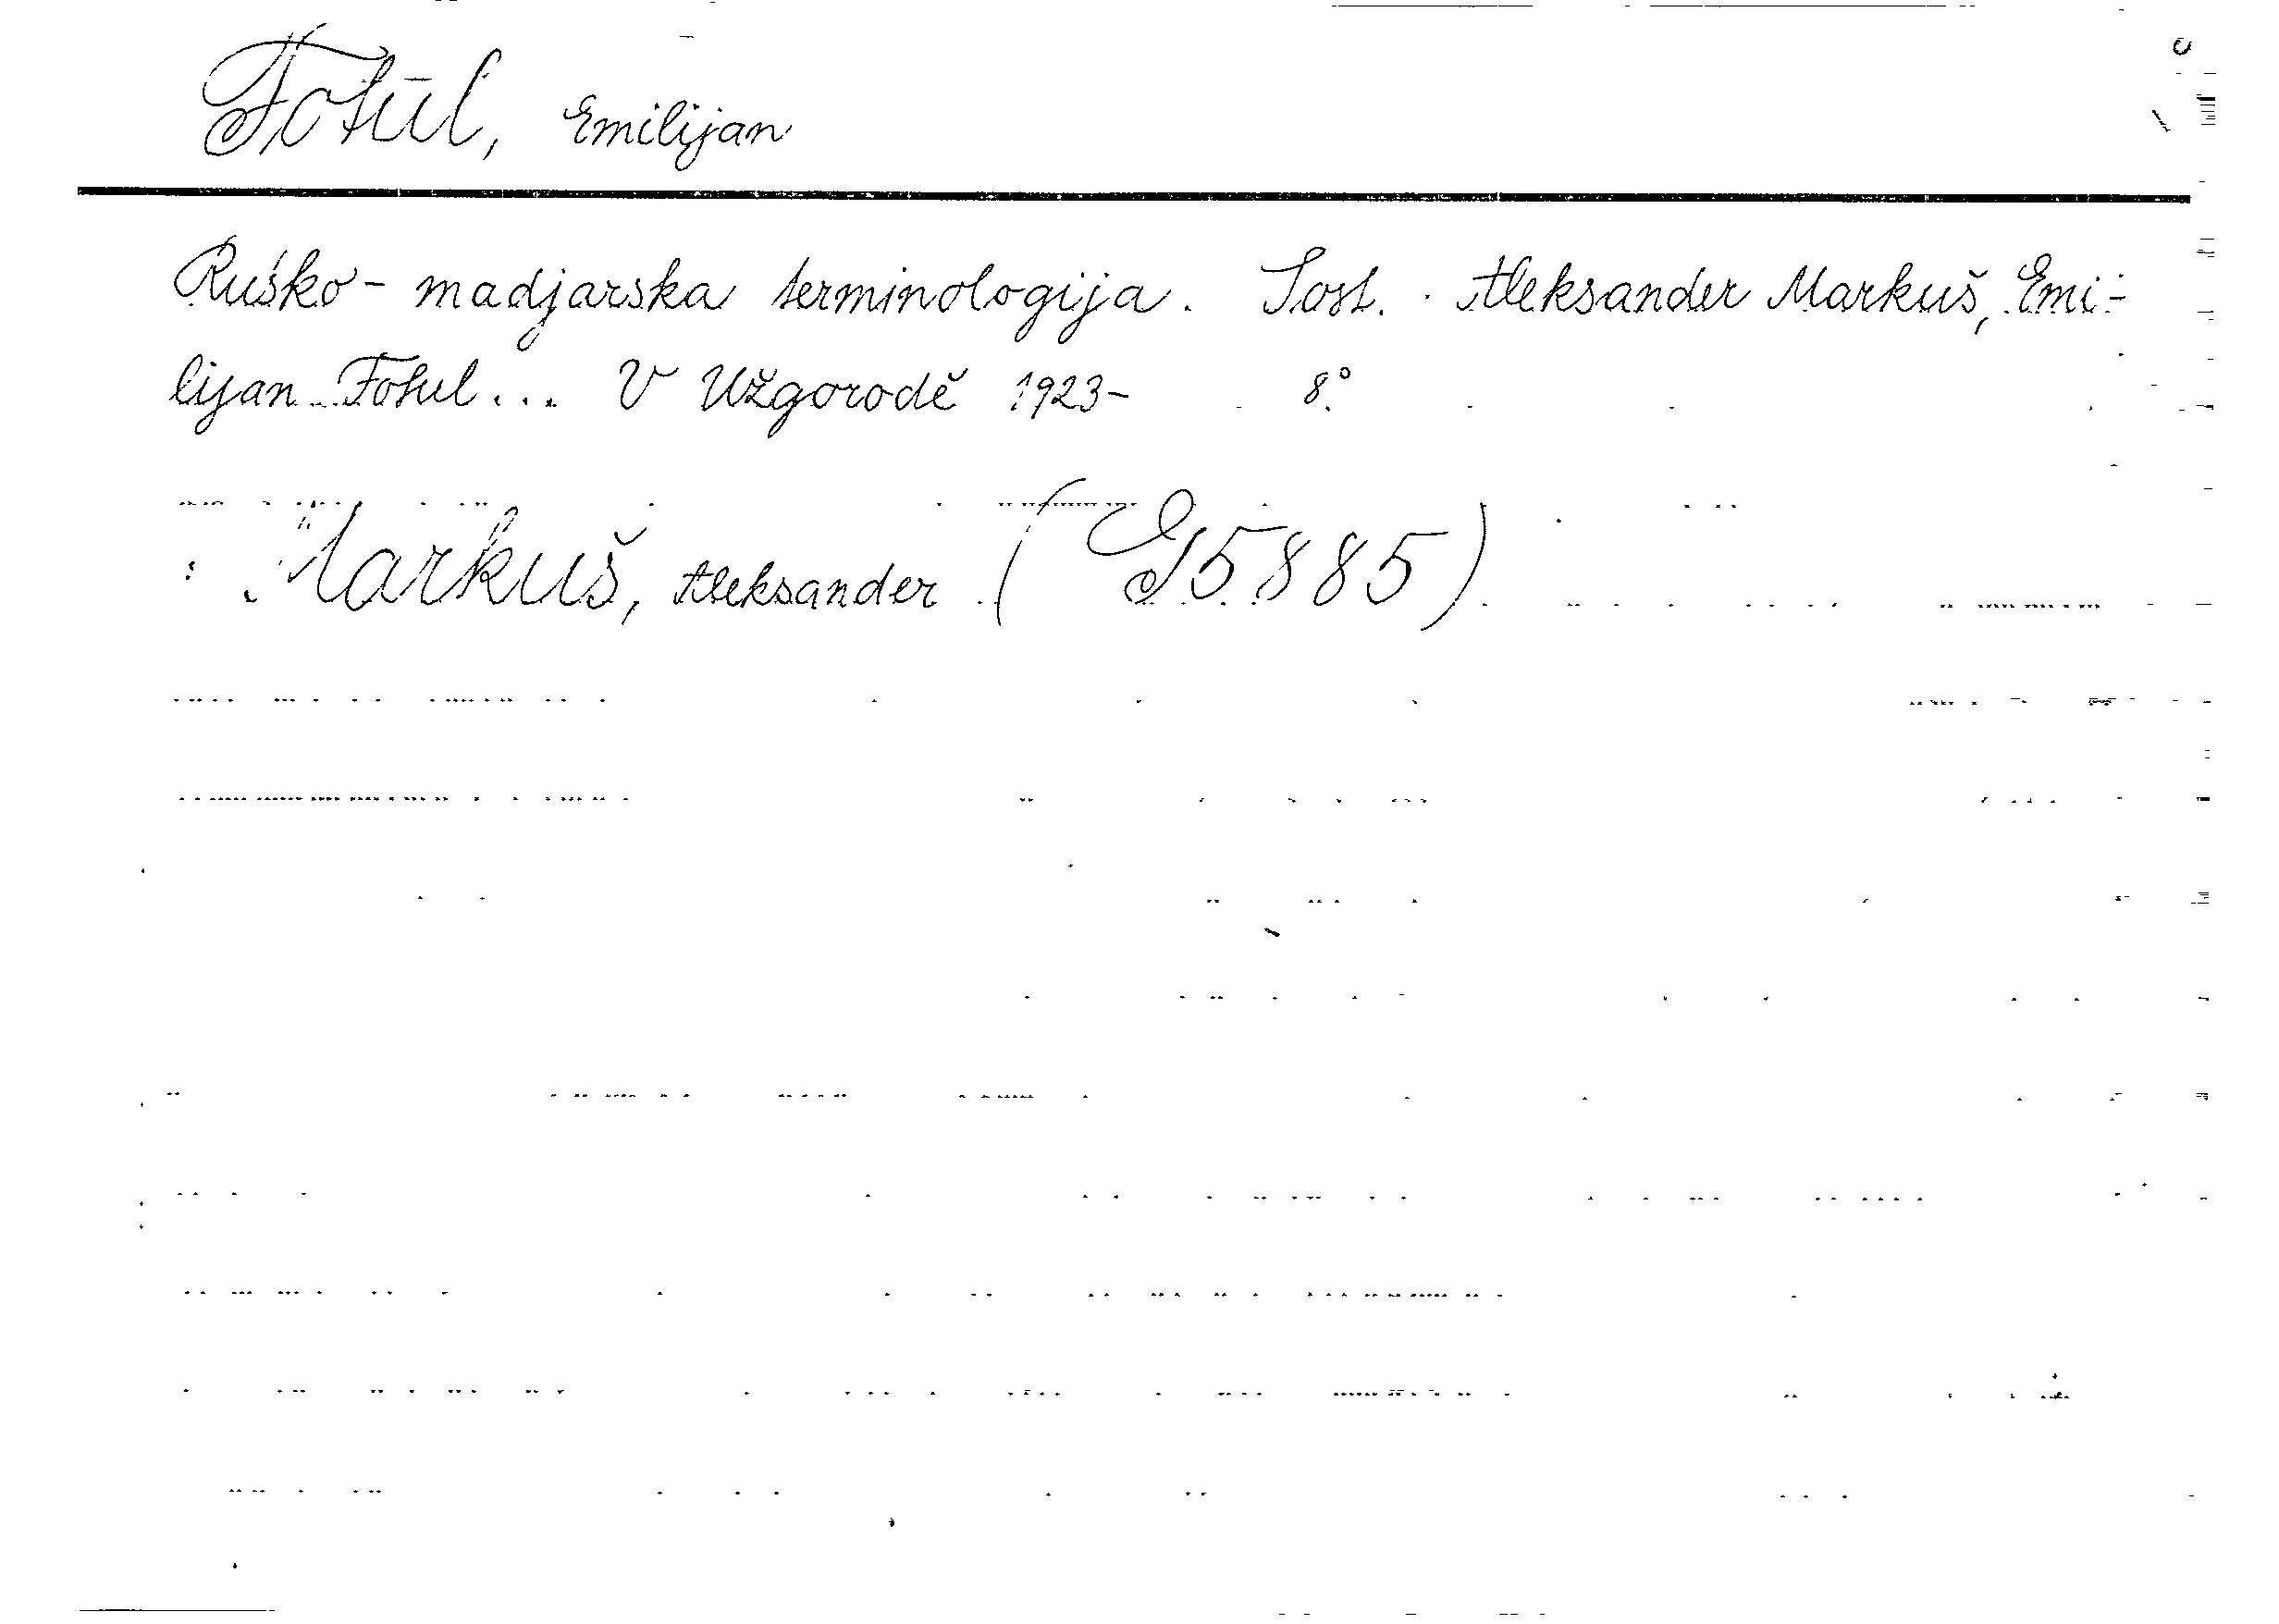 Fotul, Emilijan
Ruśko-madjarska terminologija. Sost. Aleksander Markuš, Emi-
lijan Fotul... V Užgorodě 1923- 8°
: Markuš, Aleksander (G 5885)